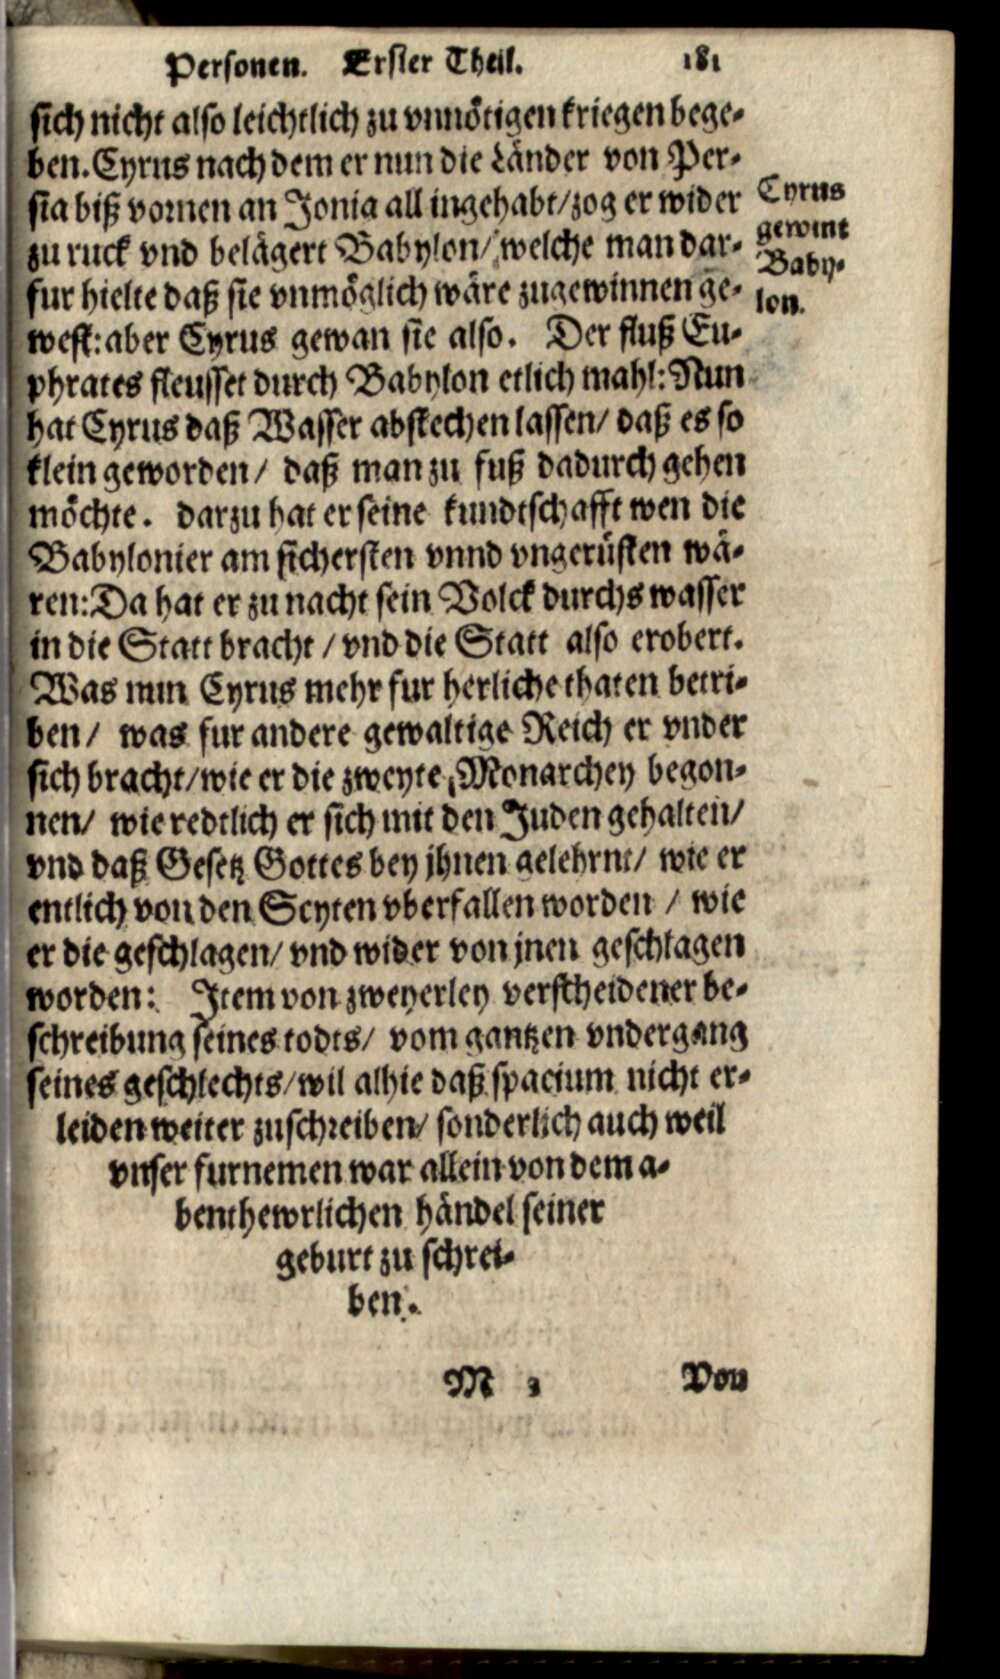 Personen. Erster Theil. 181
sich nicht also leichtlich zu vnnötigen kriegen bege-
ben. Cyrus nach dem er nun die Länder von Per-
sia biß vornen an Jonia all ingehabt/zog er wider
zu ruck vnd belägert Babylon/ welche man dar-
fur hielte daß sie vnmöglich wäre zugewinnen ge-
west: aber Cyrus gewan sie also. Der fluß Eu-
phrates fleusset durch Babylon etlich mahl: Nun
hat Cyrus daß Wasser abstechen lassen/ daß es so
klein geworden/ daß man zu fuß dadurch gehen
möchte. darzu hat er seine kundtschafft wen die
Babylonier am sichersten vnnd vngerüsten wä-
ren: Da hat er zu nacht sein Volck durchs wasser
in die Statt bracht/ vnd die Statt also erobert.
Was nun Cyrus mehr fur herliche thaten betri-
ben/ was fur andere gewaltige Reich er vnder
sich bracht/wie er die zweyte Monarchey begon-
nen/ wie redtlich er sich mit den Juden gehalten/
vnd daß Gesetz Gottes bey jhnen gelehrnt/ wie er
entlich von den Scyten vberfallen worden/ wie
er die geschlagen/ vnd wider von jnen geschlagen
worden: Item von zweyerley verscheidener be-
schreibung seines todts/ vom gantzen vndergang
seines geschlechts/wil alhie daß spacium nicht er-
leiden weiter zuschreiben/ sonderlich auch weil
vnser furnemen war allein von dem a-
benthewrlichen händel seiner
geburt zu schrei-
ben.
Cyrus
gewint
Baby-
lon.
M 3 Von